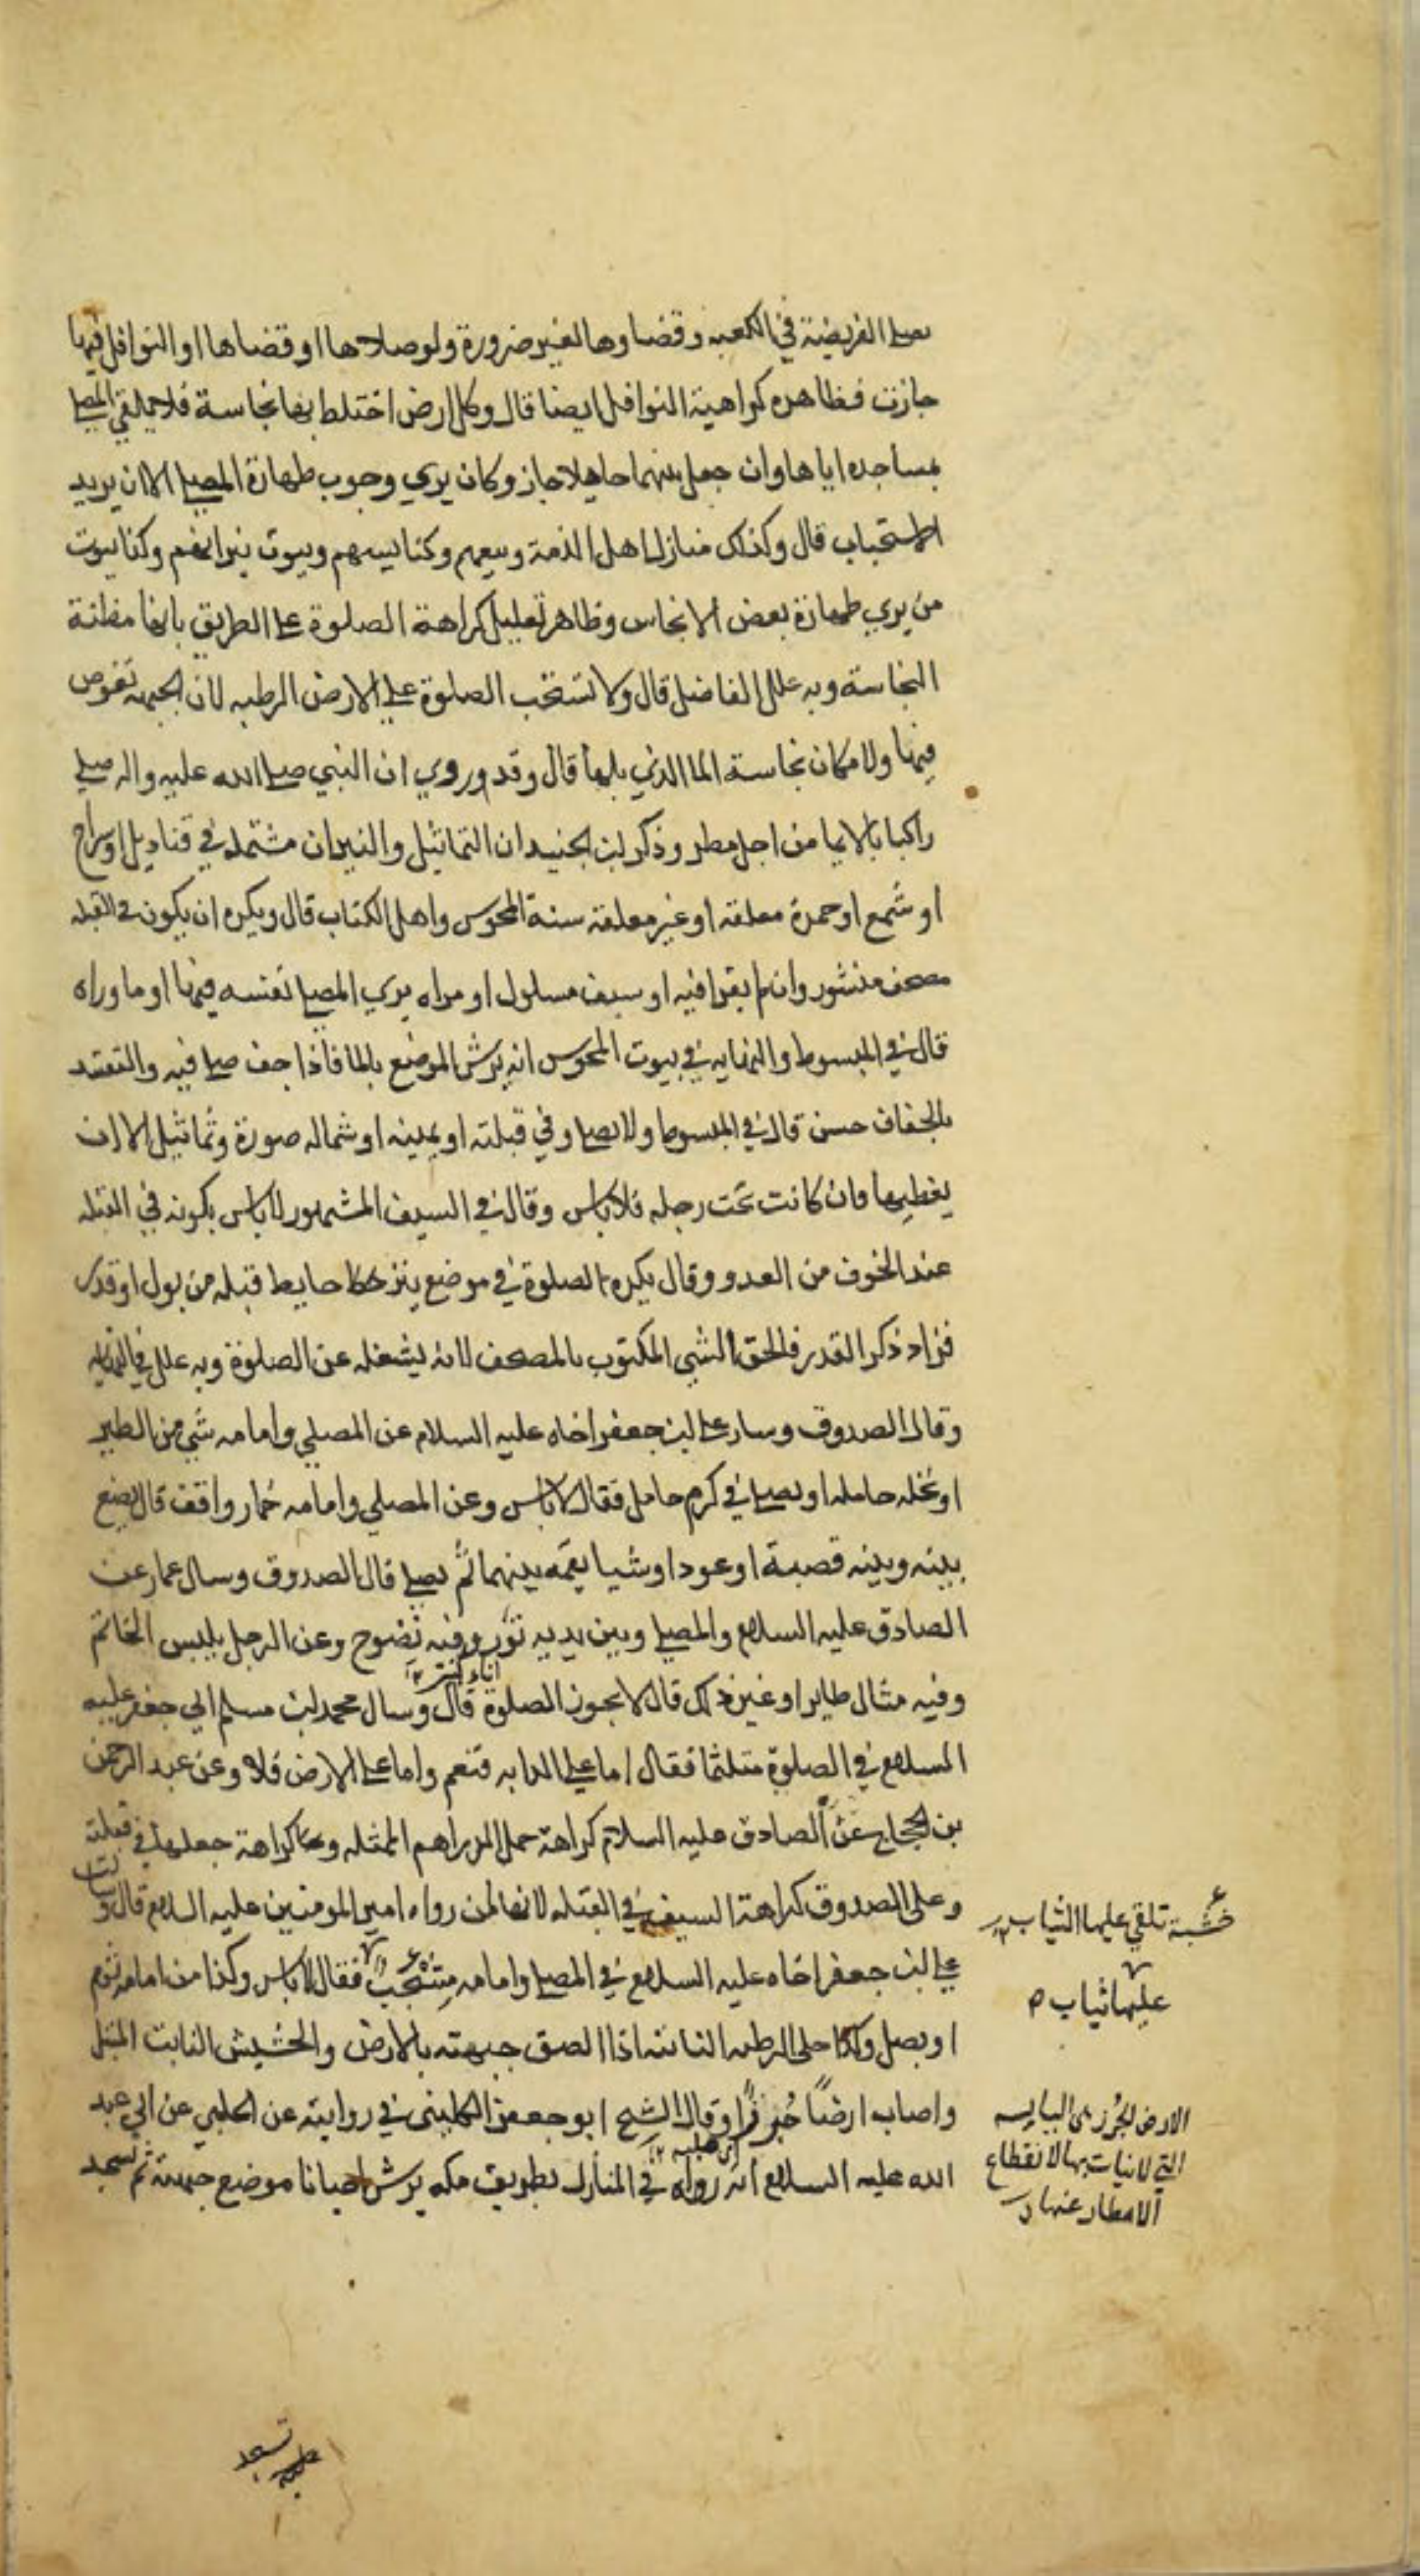 يصلي الفريضة في الكعبه وقضاوها لغير ضرورة ولو صلاحها او قضاها او النوافل فيها
جازت فظاهره كراهية النوافل ايضا قال وكل ارض اختلط بها نجاسة فلا يلقي المصلي
بمساجده اياها وان جعل بينهما حايلا جاز وكان يري وجوب طهارة المصلي الا ان يريد
الاستحباب قال وكذلك منازل اهل الذمة وبيعهم وكنايسهم وبيوت نيرانهم وكذا بيوت
من يري طهارة بعض الانجاس وظاهر تعليل كراهة الصلوة علي الطريق بانها مظنة
النجاسة وبه علل الفاضل قال ولا تستحب الصلوة علي الارض الرطبه لان الجبهه تغوص
فيها ولا مكان نجاسة الما الذي بلها قال وقد وروي ان النبي صلي الله عليه واله صلي
راكبا بالايما من اجل مطر وذكر ابن الجنيد ان التماثيل والنيران مشتعله في قناديل او سراج
او شمع او جمرة معلقه او غير معلقه سنة المجوس واهل الكتاب قال ويكره ان يكون في القبله
مصحف منشور وان لم يقرا فيه او سيف مسلول او مراه يري المصلي نفسه فيها او ما وراه
قال في المبسوط والنهايه في بيوت المجوس انه يرش الموضع بالما فاذا جف صلي فيه والتقييد
بالجفاف حسن قال في المبسوط ولا يصلي وفي قبلته او يمينه او شماله صورة وتماثيل الا ان
يغطيها فان كانت تحت رجله فلا باس وقال في السيف المشهور لا باس بكونه في القبله
عند الخوف من العدو وقال يكره الصلوة في موضع ينز حايط قبلته من بول او قذر
فزاد ذكر القذر فالحق الشي المكتوب بالمصحف لانه يشغله عن الصلوة وبه علل في النهايه
وقال الصدوق وسال علي بن جعفر اخاه عليه السلام عن المصلي وامامه شي من الطير
او نخله حامله او يصلي في كرم حامل فقال لا باس وعن المصلي وامامه حمار واقف قال يضع
بينه وبينه قصبة او عودا او شيا يقيمه بينهما ثم يصلي قال الصدوق وسال عمار عن
الصادق عليه السلام والمصلي وبين يديه تور وفيه نضوح وعن الرجل يلبس الخاتم
وفيه مثال طاير او غير ذلك قال لا يجوز الصلوة قال وسال محمد بن مسلم ابي جعفر عليه
السلام في الصلوة متلثما فقال اما علي الدابه فنعم واما علي الارض فلا وعن عبد الرحمن
بن الحجاج عن الصادق عليه السلام كراهة حمل الدراهم الممثله وكذا كراهة جعلها في قبلته
وعلل الصدوق كراهة السيف في القبله لانها امن رواه امير المومنين عليه السلام قال وسال
علي بن جعفر اخاه عليه السلام في المصلي وامامه مشجب فقال لا باس وكذا من امامه ثوم
او بصل وكذا علي الرطبه النابته اذا الصق جبهته بالارض والحشيش النابت المثيل
واصاب ارضا جرزا وقال الشيخ ابو جعفر الكليني في روايته عن الحلبي عن ابي عبد
الله عليه السلام انه رواه في المنازل بطريق مكه يرش احيانا موضع جبهته ثم يسجد
خشبة تلقي عليها الثياب
عليها ثياب ص
الارض الجرز هي اليابسه
التي لا نبات بها لانقطاع
الامطار عنها